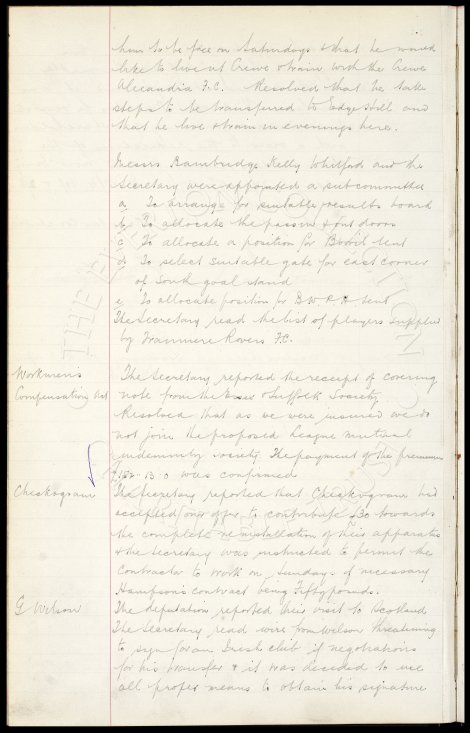 him to be free on Saturdays & that he would
like to live at Crewe & train with the Crewe
Alexandria F.C. Resolved that he take
steps to be transferred to Edge Hill and
that he live & train in evenings here.
Messrs Bainbridge Kelly Whitford and the
Secretary were appointed a subcommittee
a To arrange for suitable results board
b To allocate the passin & out doors
c To allocate a position for Bovril tent
d To select suitable gate for east corner
of South goal stand
e To allocate position for B W R R tent
The Secretary read the list of players supplied
by Tranmere Rovers F.C.
Workmens
Compensation Act
The Secretary reported the receipt of covering
note from the Suffolk Society.
Resolved that as we were insured we do
not join the proposed League mutual
indemnity society. The payment of the premium
13 . 0 was confirmed
Cheskogram
The Secretary reported that Cheskograms had
accepted our offer to contribute £30 towards
the complete reinstallation of their apparatus
& the Secretary was instructed to permit the
Contractor to work on Sundays if necessary
Hampsons contract being Fifty pounds.
G Wilson
The deputation reported their visit to Scotland
The Secretary read wire from Wilson threatening
to sign for an Irish club if negotiations
for his transfer & it was decided to use
all proper means to obtain his signature